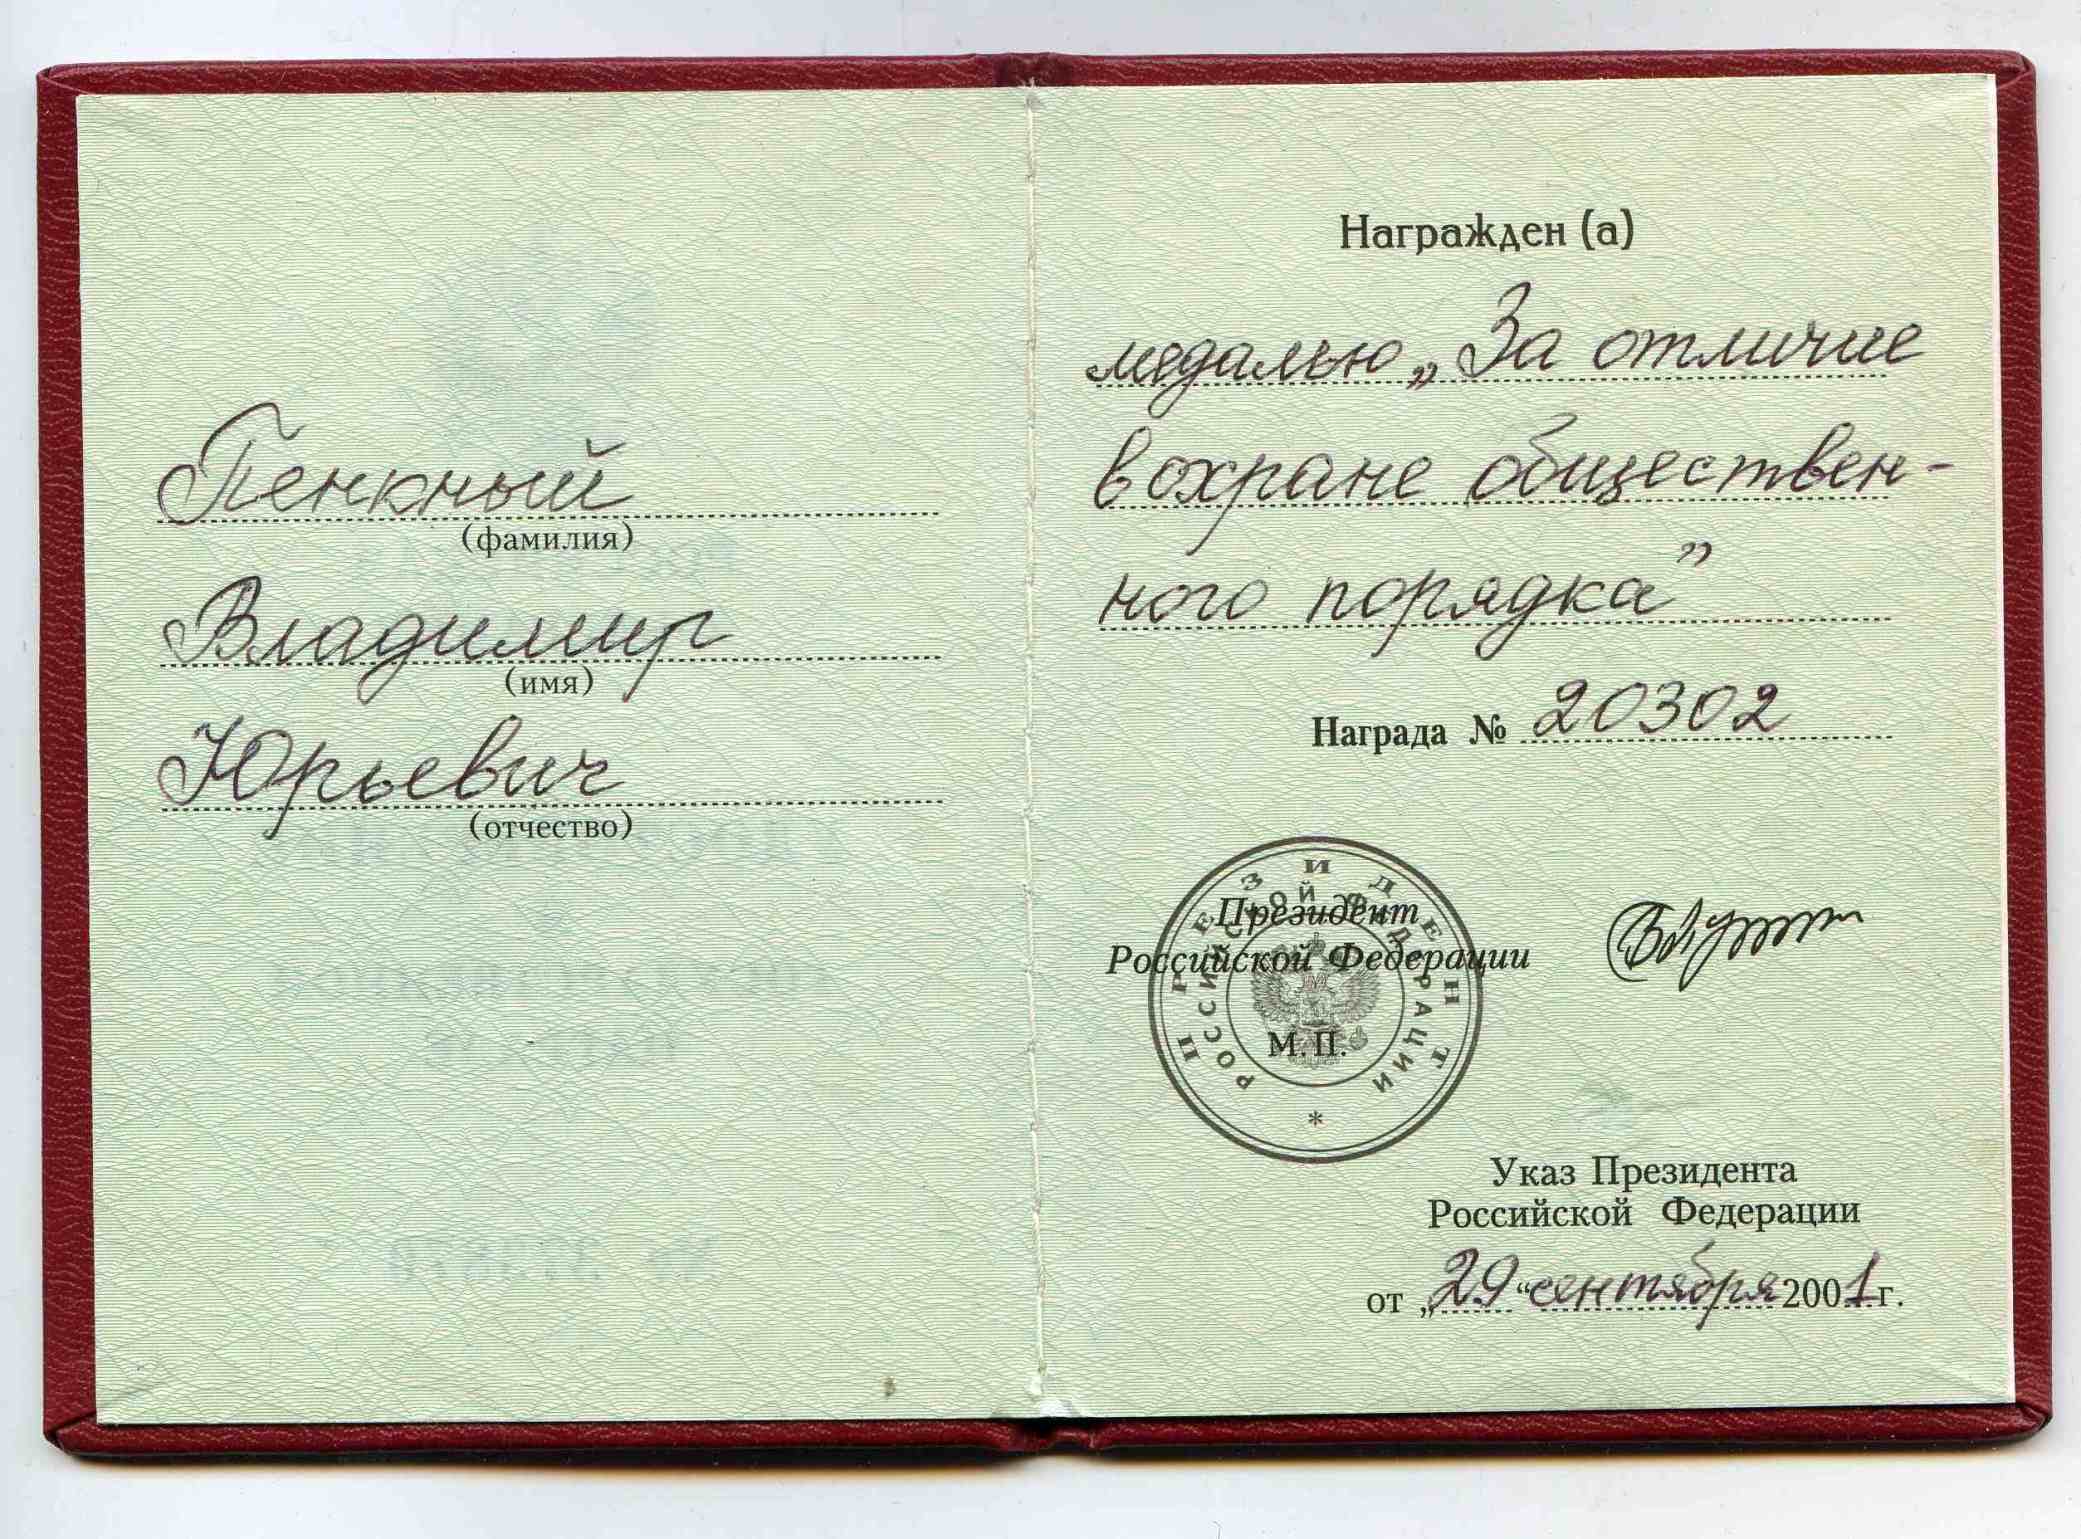 Пенкный
(фамилия)
Владимир
(имя)
Юрьевич
(отчество)
Награжден (а)
медалью „За отличие
в охране обществен-
ного порядка”
Награда № 20302
ПРЕЗИДЕНТ
РОССИЙСКОЙ ФЕДЕРАЦИИ
*
Президент
Российской Федерации
М. П.
Указ Президента
Российской Федерации
от „29“ сентября 2001 г.